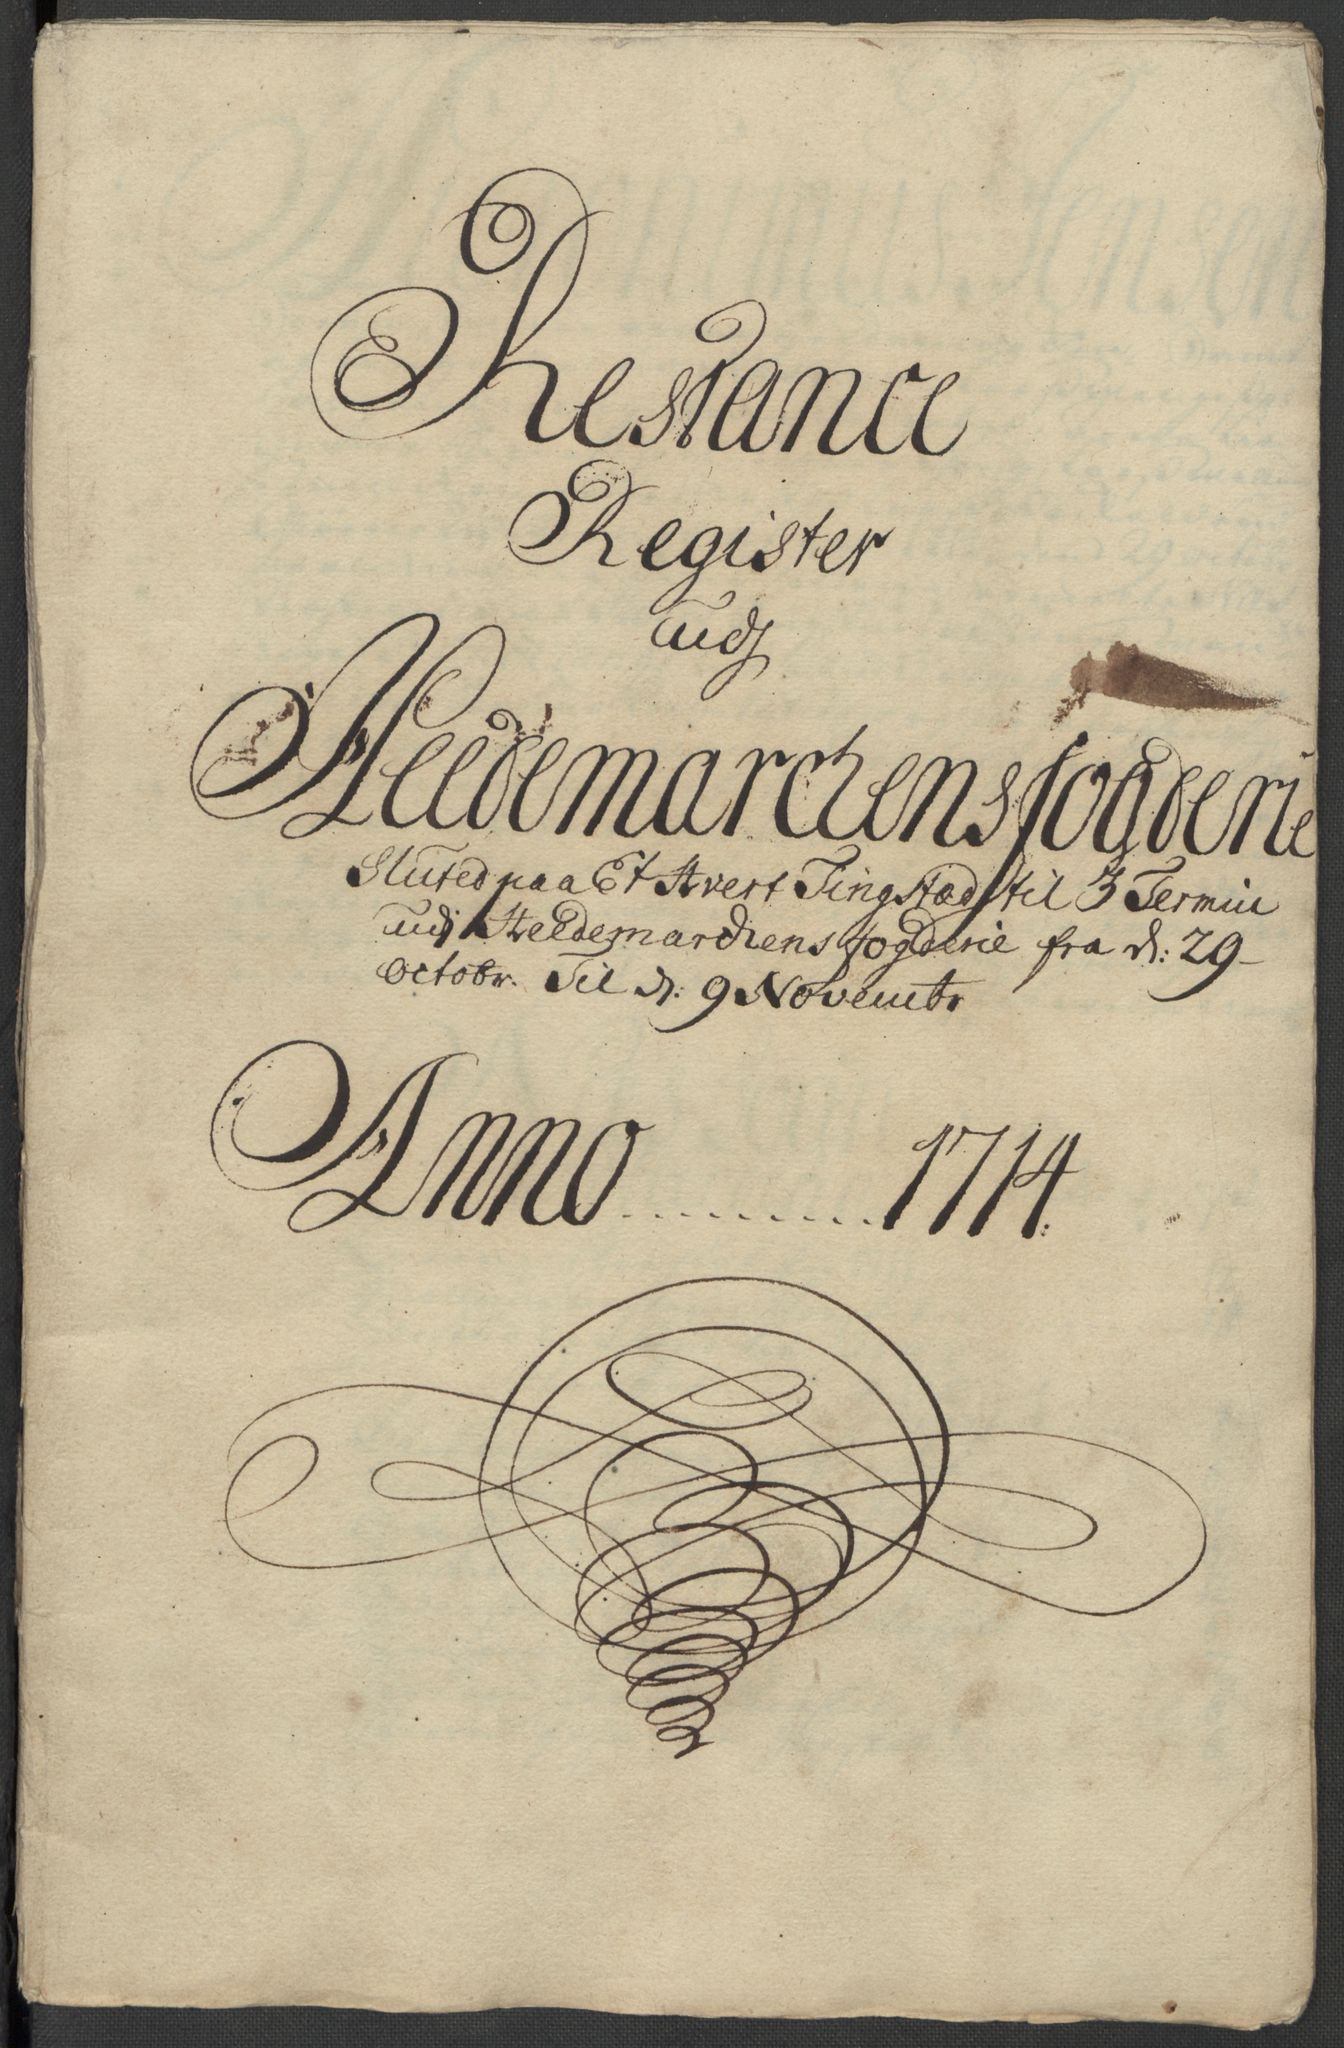 Restance
Register
udj
Heedemarchens fogderie
Sluted paa Et hvert Tingstæd til 3 Termin
udj Heedemarchens fogderie fra d: 29
octobr. Til d: 9 Novembr
Anno 1714